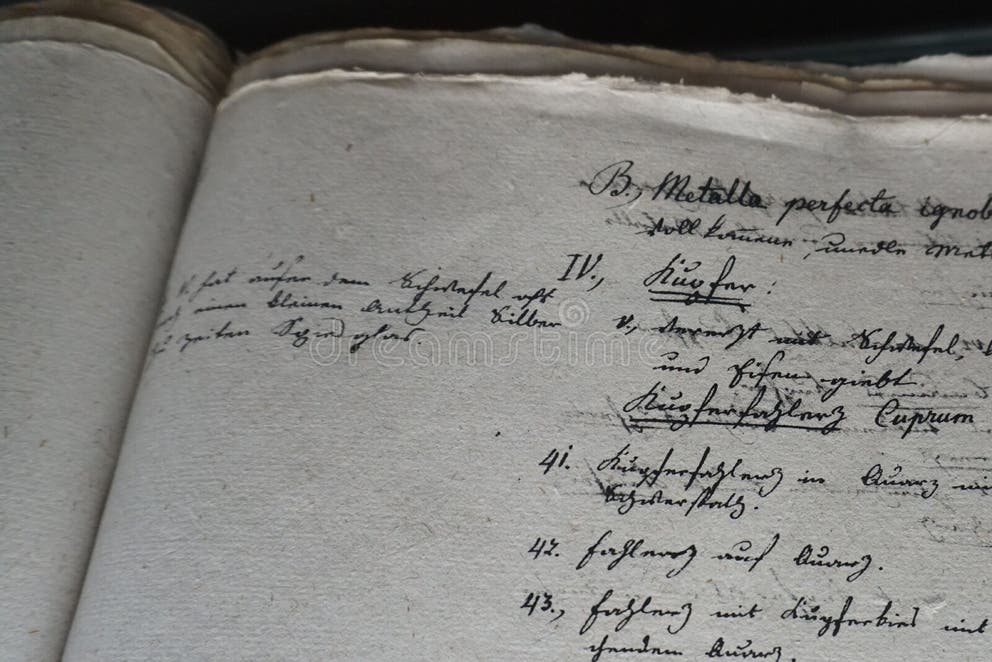 B., Metalla perfecta ignob
Vollkom̅ene, unedle Met
IV., Kupfer:
v., vererzt mit Schwefel,
und Eisen giebt
Kupferfahlerz Cuprum
41. Kupferfahlerz in Quarz
42. Fahlerz auf Quarz.
43., Fahlerz mit Kupferkies mit
chendem Quarz.
hat außer dem Schwefel oft
einen kleinen Antheil Silber
zeiten Spiesglas.
dreamstime